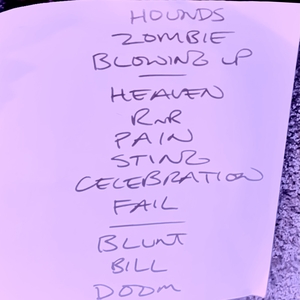 HOUNDS
ZOMBIE
BLOWING UP
HEAVEN
RNR
PAIN
STING
CELEBRATION
FAIL
BLUNT
BILL
DOOM